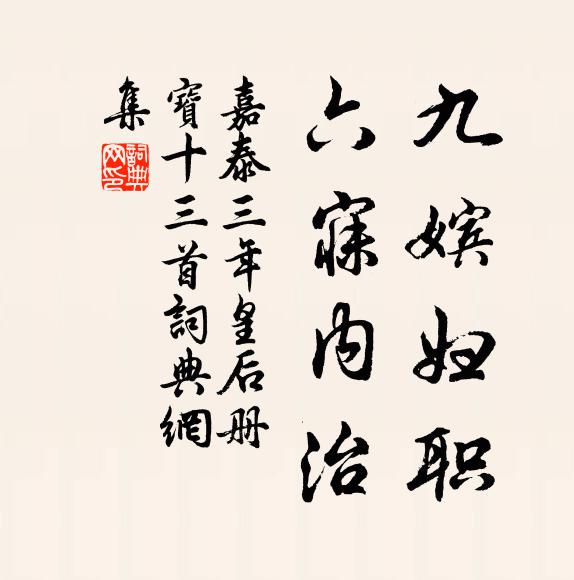 九嫔妇职
六寐内治
嘉泰三年皇后册
寶十三首詞典網
集
詞典網印